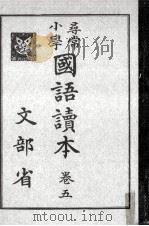 尋常
小學
國語讀本 卷五
文部省
www.toutu100.com